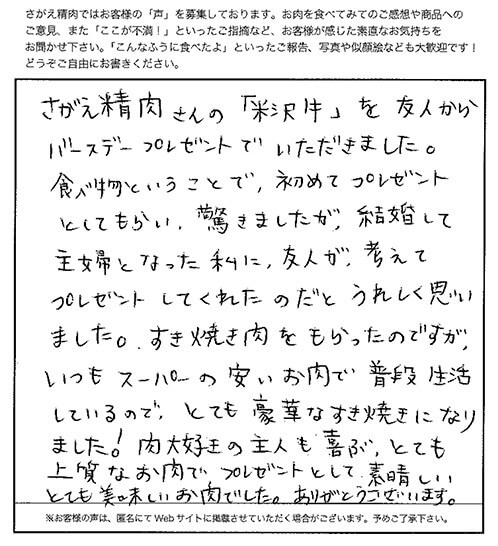 さがえ精肉ではお客様の「声」を募集しております。お肉を食べてみてのご感想や商品への
ご意見、また「ここが不満！」といったご指摘など、お客様が感じた素直なお気持ちを
お聞かせ下さい。「こんなふうに食べたよ」といったご報告、写真や似顔絵なども大歓迎です！
どうぞご自由にお書きください。
さがえ精肉さんの「米沢牛」を友人から
バースデープレゼントでいただきました。
食べ物ということで、初めてプレゼント
としてもらい、驚きましたが、結婚して
主婦となった私に、友人が、考えて
プレゼントしてくれたのだとうれしく思い
ました。すき焼き肉をもらったのですが、
いつもスーパーの安いお肉で普段生活
しているので、とても豪華なすき焼きになり
ました！肉大好きの主人も喜ぶ、とても
上質なお肉でプレゼントとして素晴しい
とても美味しいお肉でした。ありがとうございます。
※お客様の声は、匿名にてWebサイトに掲載させていただく場合がございます。予めご了承下さい。